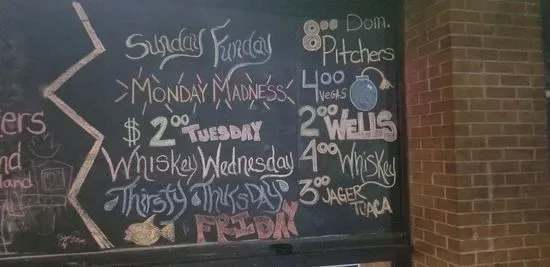 Sunday Funday
MONDAY MADNESS
$2⁰⁰ TUESDAY
WHISKEY WEDNESDAY
THIRSTY THURSDAY
FRIDAY
8⁰⁰ Dom.
Pitchers
4⁰⁰ VEGAS
2⁰⁰ WELLS
4⁰⁰ WHISKEY
3⁰⁰ JAGER
TUACA
ers
nd
land